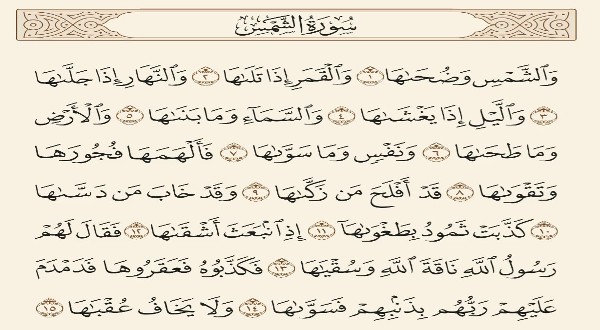 سُورَةُ الشَّمْسِ
وَٱلشَّمْسِ وَضُحَىٰهَا ١ وَٱلْقَمَرِ إِذَا تَلَىٰهَا ٢ وَٱلنَّهَارِ إِذَا جَلَّىٰهَا
٣ وَٱلَّيْلِ إِذَا يَغْشَىٰهَا ٤ وَٱلسَّمَآءِ وَمَا بَنَىٰهَا ٥ وَٱلْأَرْضِ
وَمَا طَحَىٰهَا ٦ وَنَفْسٍ وَمَا سَوَّىٰهَا ٧ فَأَلْهَمَهَا فُجُورَهَا
وَتَقْوَىٰهَا ٨ قَدْ أَفْلَحَ مَن زَكَّىٰهَا ٩ وَقَدْ خَابَ مَن دَسَّىٰهَا
١٠ كَذَّبَتْ ثَمُودُ بِطَغْوَىٰهَآ ١١ إِذِ ٱنۢبَعَثَ أَشْقَىٰهَا ١٢ فَقَالَ لَهُمْ
رَسُولُ ٱللَّهِ نَاقَةَ ٱللَّهِ وَسُقْيَٰهَا ١٣ فَكَذَّبُوهُ فَعَقَرُوهَا فَدَمْدَمَ
عَلَيْهِمْ رَبُّهُم بِذَنۢبِهِمْ فَسَوَّىٰهَا ١٤ وَلَا يَخَافُ عُقْبَٰهَا ١٥